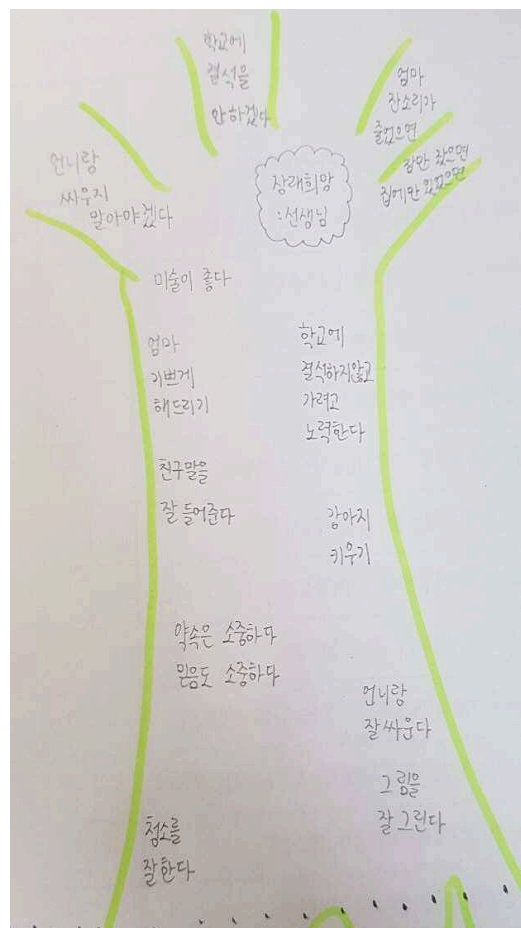 학교에
결석을
안하겠다
엄마
잔소리가
줄었으면
잠만 잤으면
집에만 있었으면
언니랑
싸우지
말아야겠다
장래희망
:선생님
미술이 좋다
엄마
기쁘게
해드리기
학교에
결석하지않고
가려고
노력한다
친구말을
잘 들어준다
강아지
키우기
약속은 소중하다
믿음도 소중하다
언니랑
잘싸운다
그림을
잘 그린다
청소를
잘한다